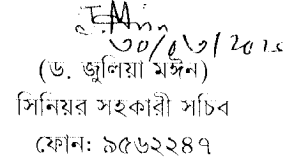 ৩০/০৩/২০১৫
(ড. জুলিয়া মঈন)
সিনিয়র সহকারী সচিব
ফোন: ৯৫৬২২৪৭